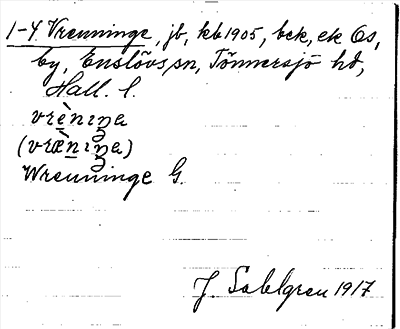 1-4 Vrenninge, jb, kb 1905, bek, ek Os,
by, Enslövs sn, Tönnersjö hd,
Hall. l.
vrèniŋa
(vræ̀niŋa)
Wrenninge G.
J. Sahlgren 1917